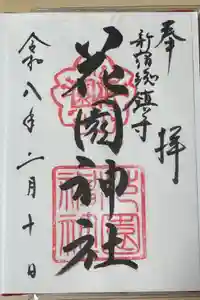 奉拝
新宿総鎮守
花園神社
令和八年二月十日